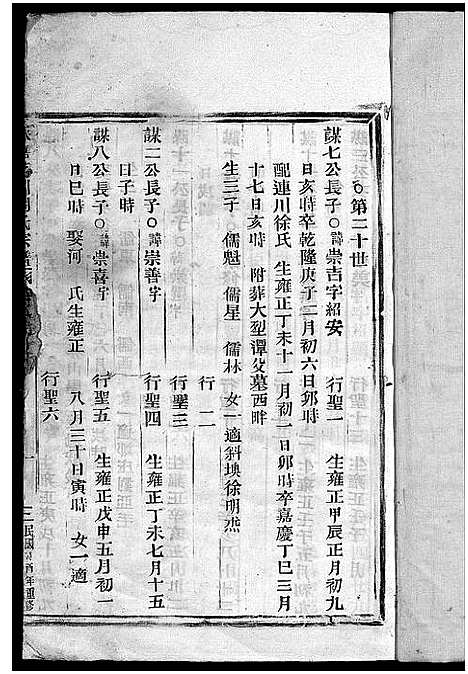 第二十世
謀七公長子○諱崇吉字紹安 行聖一 生雍正甲辰正月初九
日亥時卒乾隆庚子二月初六日卯時
配連川徐氏 生雍正丁未十一月初一日卯時卒嘉慶丁巳三月
十七日亥時 附葬大型潭父墓西畔
生三子 儒魁 儒星 儒林 女一適斜坱徐明烝
行二
行聖三
謀二公長子○諱崇善字 行聖四 生雍正丁未七月十五
日子時
謀八公長子○諱崇喜字 行聖五 生雍正戊申五月初一
日巳時 娶河 氏生雍正 八月三十日寅時 女一適
行聖六
民國 年重修